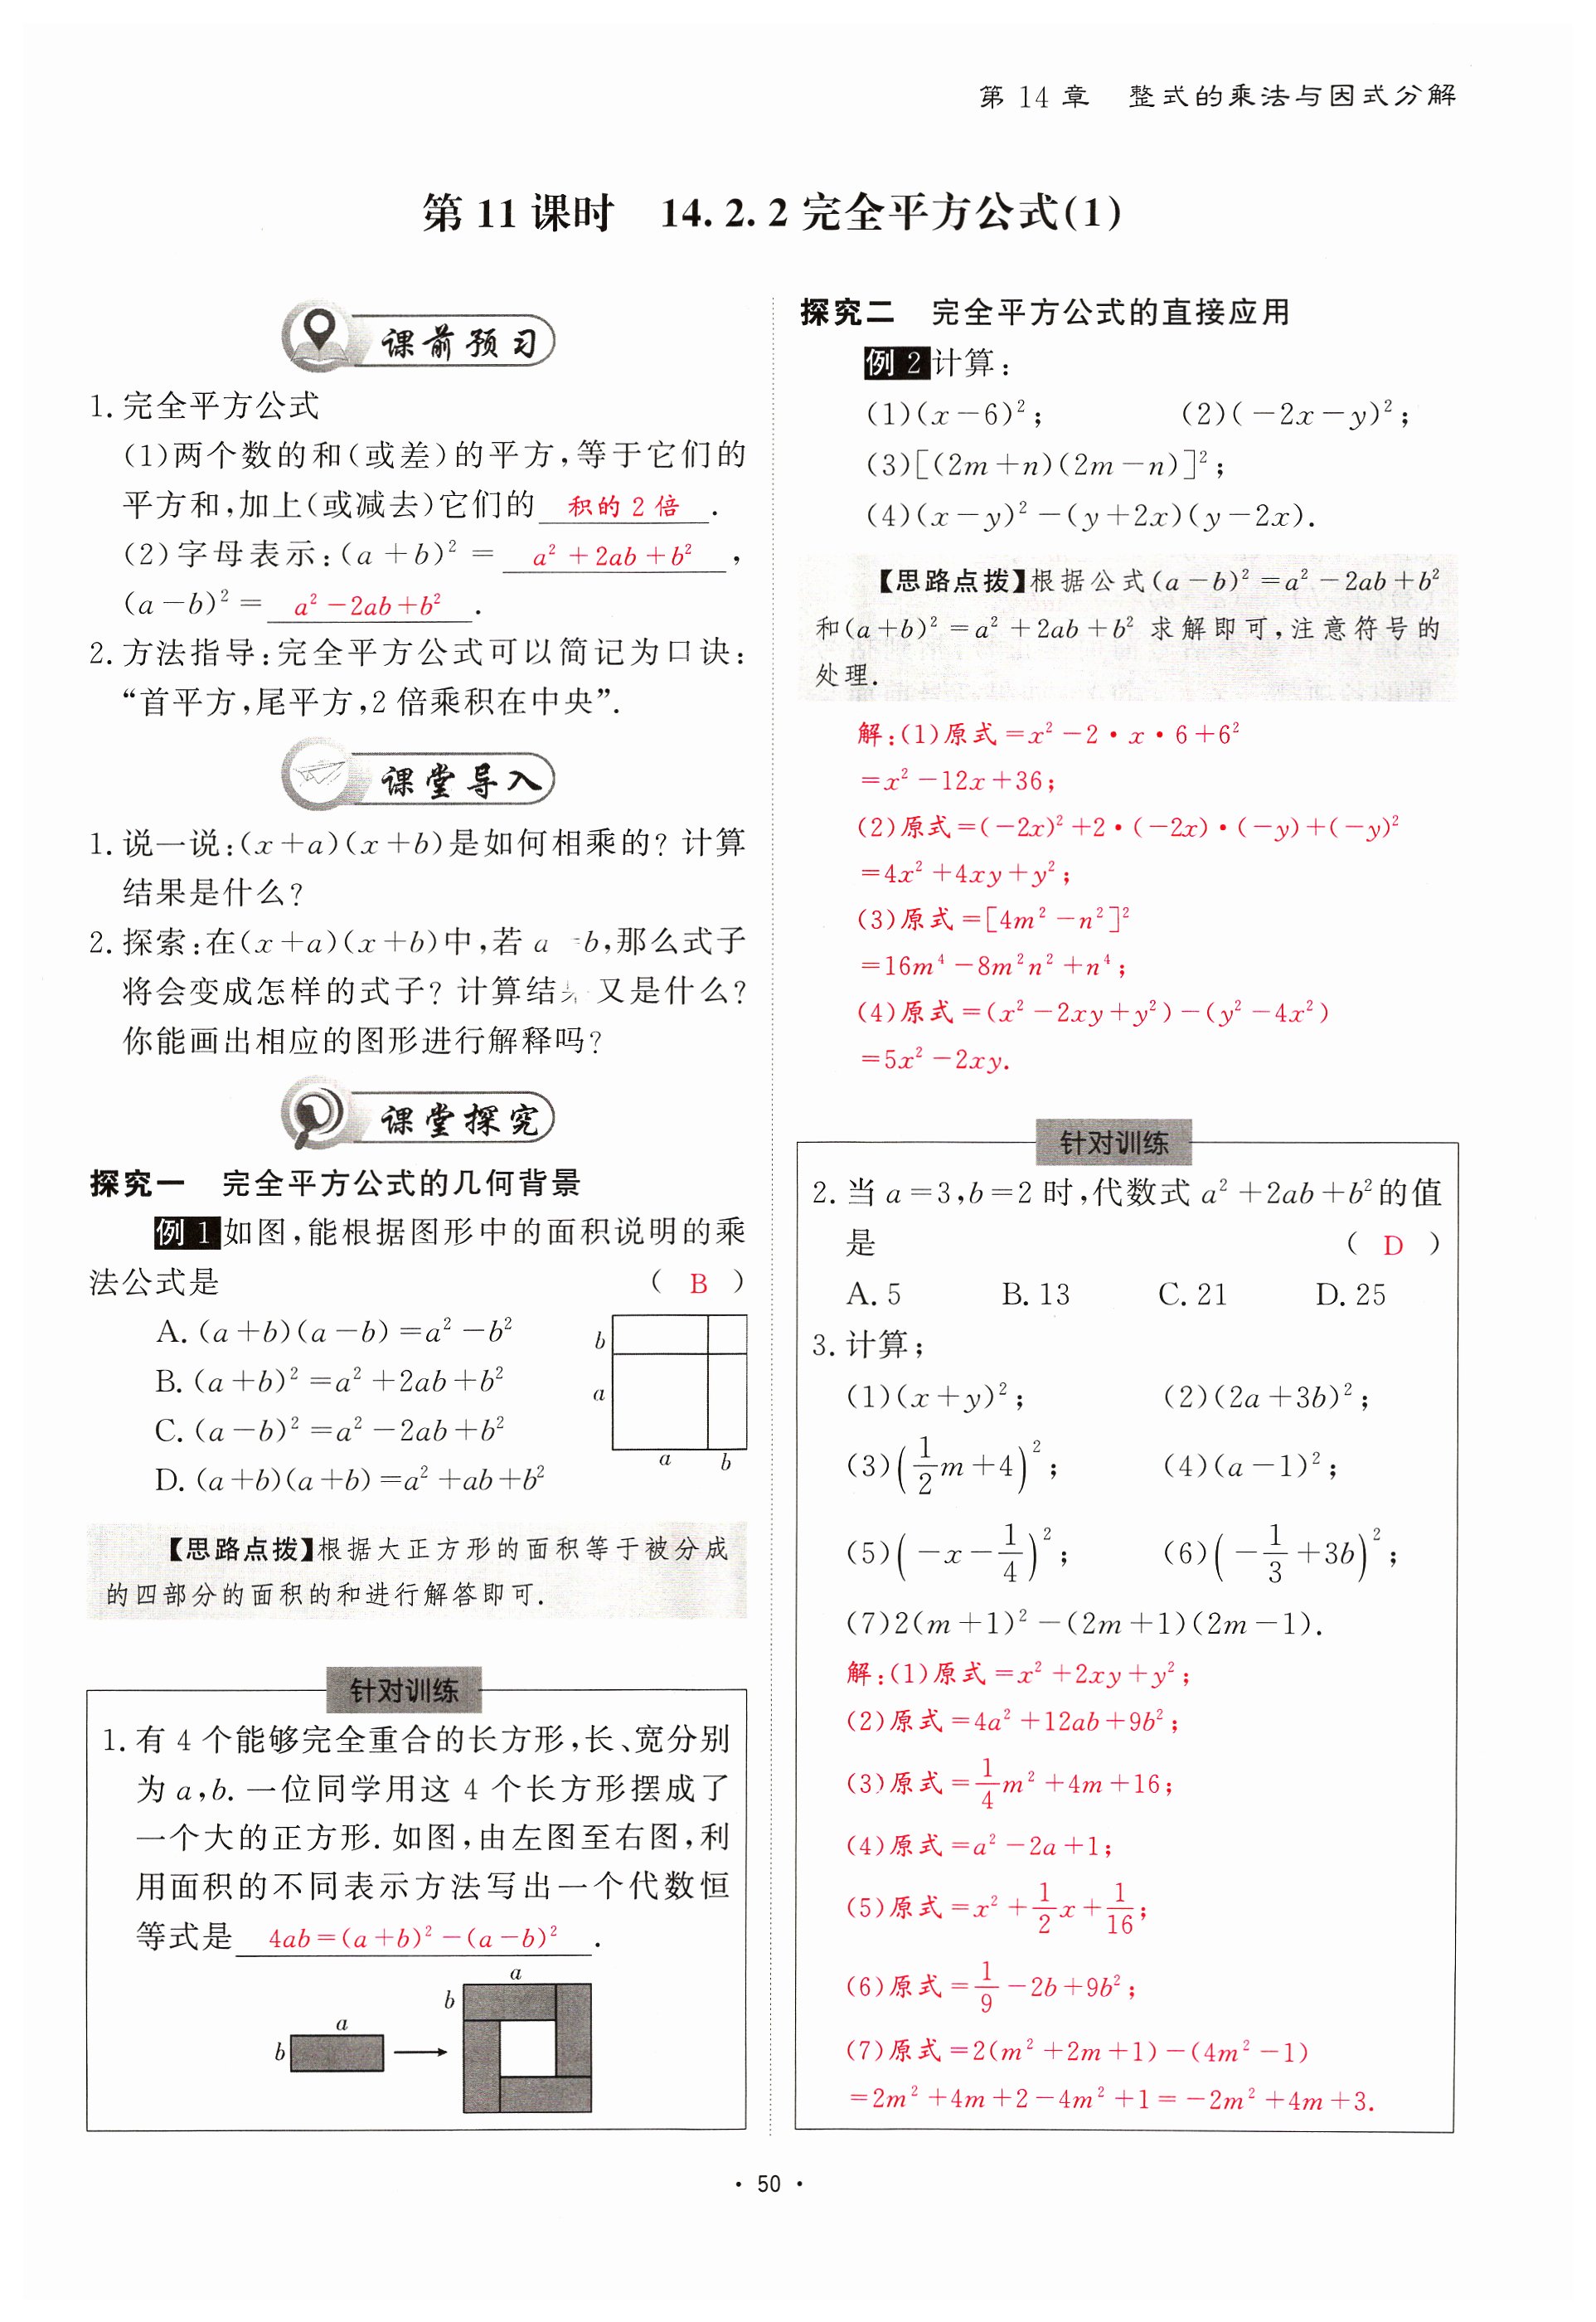 第 14 章　整式的乘法与因式分解
第 11 课时　14. 2. 2 完全平方公式(1)
课前预习
1. 完全平方公式
(1)两个数的和(或差)的平方,等于它们的
平方和,加上(或减去)它们的 积的 2 倍 .
(2)字母表示:(a+b)² = a²+2ab+b² ,
(a-b)² = a²-2ab+b² .
2. 方法指导:完全平方公式可以简记为口诀:
“首平方,尾平方,2 倍乘积在中央”.
课堂导入
1. 说一说:(x+a)(x+b)是如何相乘的? 计算
结果是什么?
2. 探索:在(x+a)(x+b)中,若 a =b,那么式子
将会变成怎样的式子? 计算结果又是什么?
你能画出相应的图形进行解释吗?
课堂探究
探究一　完全平方公式的几何背景
例 1 如图,能根据图形中的面积说明的乘
法公式是 ( B )
A. (a+b)(a-b)=a²-b²
B. (a+b)²=a²+2ab+b²
C. (a-b)²=a²-2ab+b²
D. (a+b)(a+b)=a²+ab+b²
b
a
a b
【思路点拨】根据大正方形的面积等于被分成
的四部分的面积的和进行解答即可.
针对训练
1. 有 4 个能够完全重合的长方形,长、宽分别
为 a,b. 一位同学用这 4 个长方形摆成了
一个大的正方形. 如图,由左图至右图,利
用面积的不同表示方法写出一个代数恒
等式是 4ab=(a+b)²-(a-b)² .
a
b
a
b
探究二　完全平方公式的直接应用
例 2 计算:
(1)(x-6)²; (2)(-2x-y)²;
(3)[(2m+n)(2m-n)]²;
(4)(x-y)²-(y+2x)(y-2x).
【思路点拨】根据公式(a-b)²=a²-2ab+b²
和(a+b)²=a²+2ab+b² 求解即可,注意符号的
处理.
解:(1)原式=x²-2·x·6+6²
=x²-12x+36;
(2)原式=(-2x)²+2·(-2x)·(-y)+(-y)²
=4x²+4xy+y²;
(3)原式=[4m²-n²]²
=16m⁴-8m²n²+n⁴;
(4)原式=(x²-2xy+y²)-(y²-4x²)
=5x²-2xy.
针对训练
2. 当 a=3,b=2 时,代数式 a²+2ab+b²的值
是 ( D )
A. 5 B. 13 C. 21 D. 25
3. 计算;
(1)(x+y)²; (2)(2a+3b)²;
(3)(1/2 m+4)²; (4)(a-1)²;
(5)(-x-1/4)²; (6)(-1/3+3b)²;
(7)2(m+1)²-(2m+1)(2m-1).
解:(1)原式=x²+2xy+y²;
(2)原式=4a²+12ab+9b²;
(3)原式=1/4 m²+4m+16;
(4)原式=a²-2a+1;
(5)原式=x²+1/2 x+1/16;
(6)原式=1/9-2b+9b²;
(7)原式=2(m²+2m+1)-(4m²-1)
=2m²+4m+2-4m²+1=-2m²+4m+3.
· 50 ·